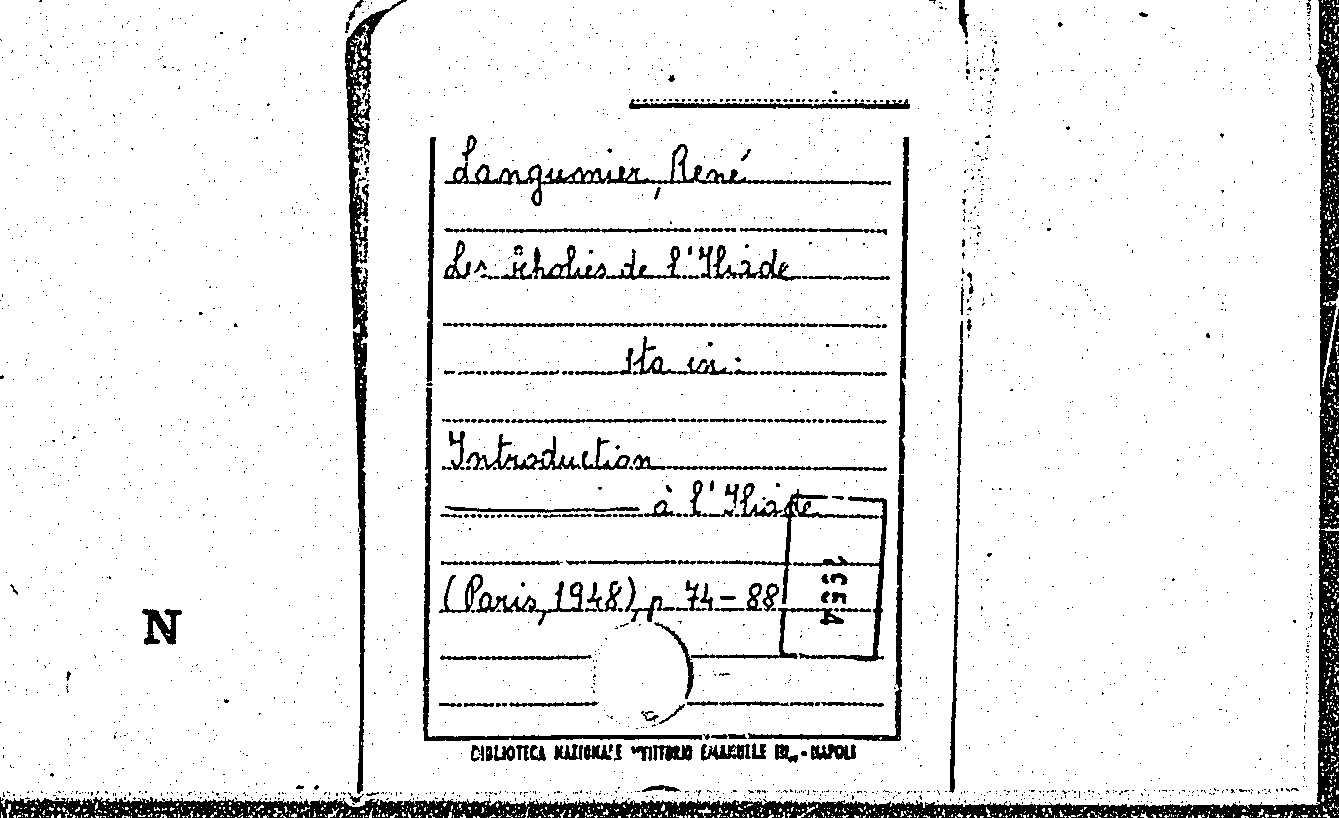 Langumier, René
Les scholies de l'Iliade
sta in:
Introduction
à l'Iliade
(Paris, 1948), p 74-88
1954
N
BIBLIOTECA NAZIONALE "VITTORIO EMANUELE III" - NAPOLI